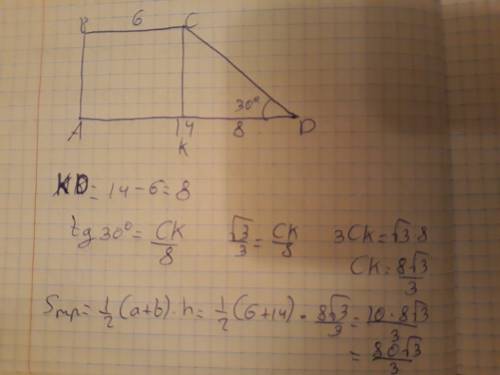 6
B C
30°
A 14 8 D
K
KD = 14 - 6 = 8
tg 30° = CK/8 √3/3 = CK/8 3CK = √3·8
CK = 8√3/3
Sтр = 1/2 (a+b)·h = 1/2 (6+14) · 8√3/3 = 10·8√3/3
= 80√3/3